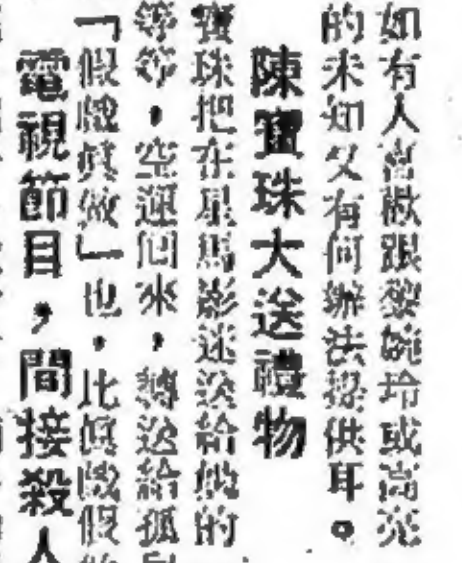 如有人喜歡跟黎婉玲或高亮
的未知又有何辦法提供耳。
陳寶珠大送禮物
寶珠把在星馬影迷送給她的
等等，空運回來，轉送給孤
「假戲真做」也，此真戲假
電視節目，間接殺人